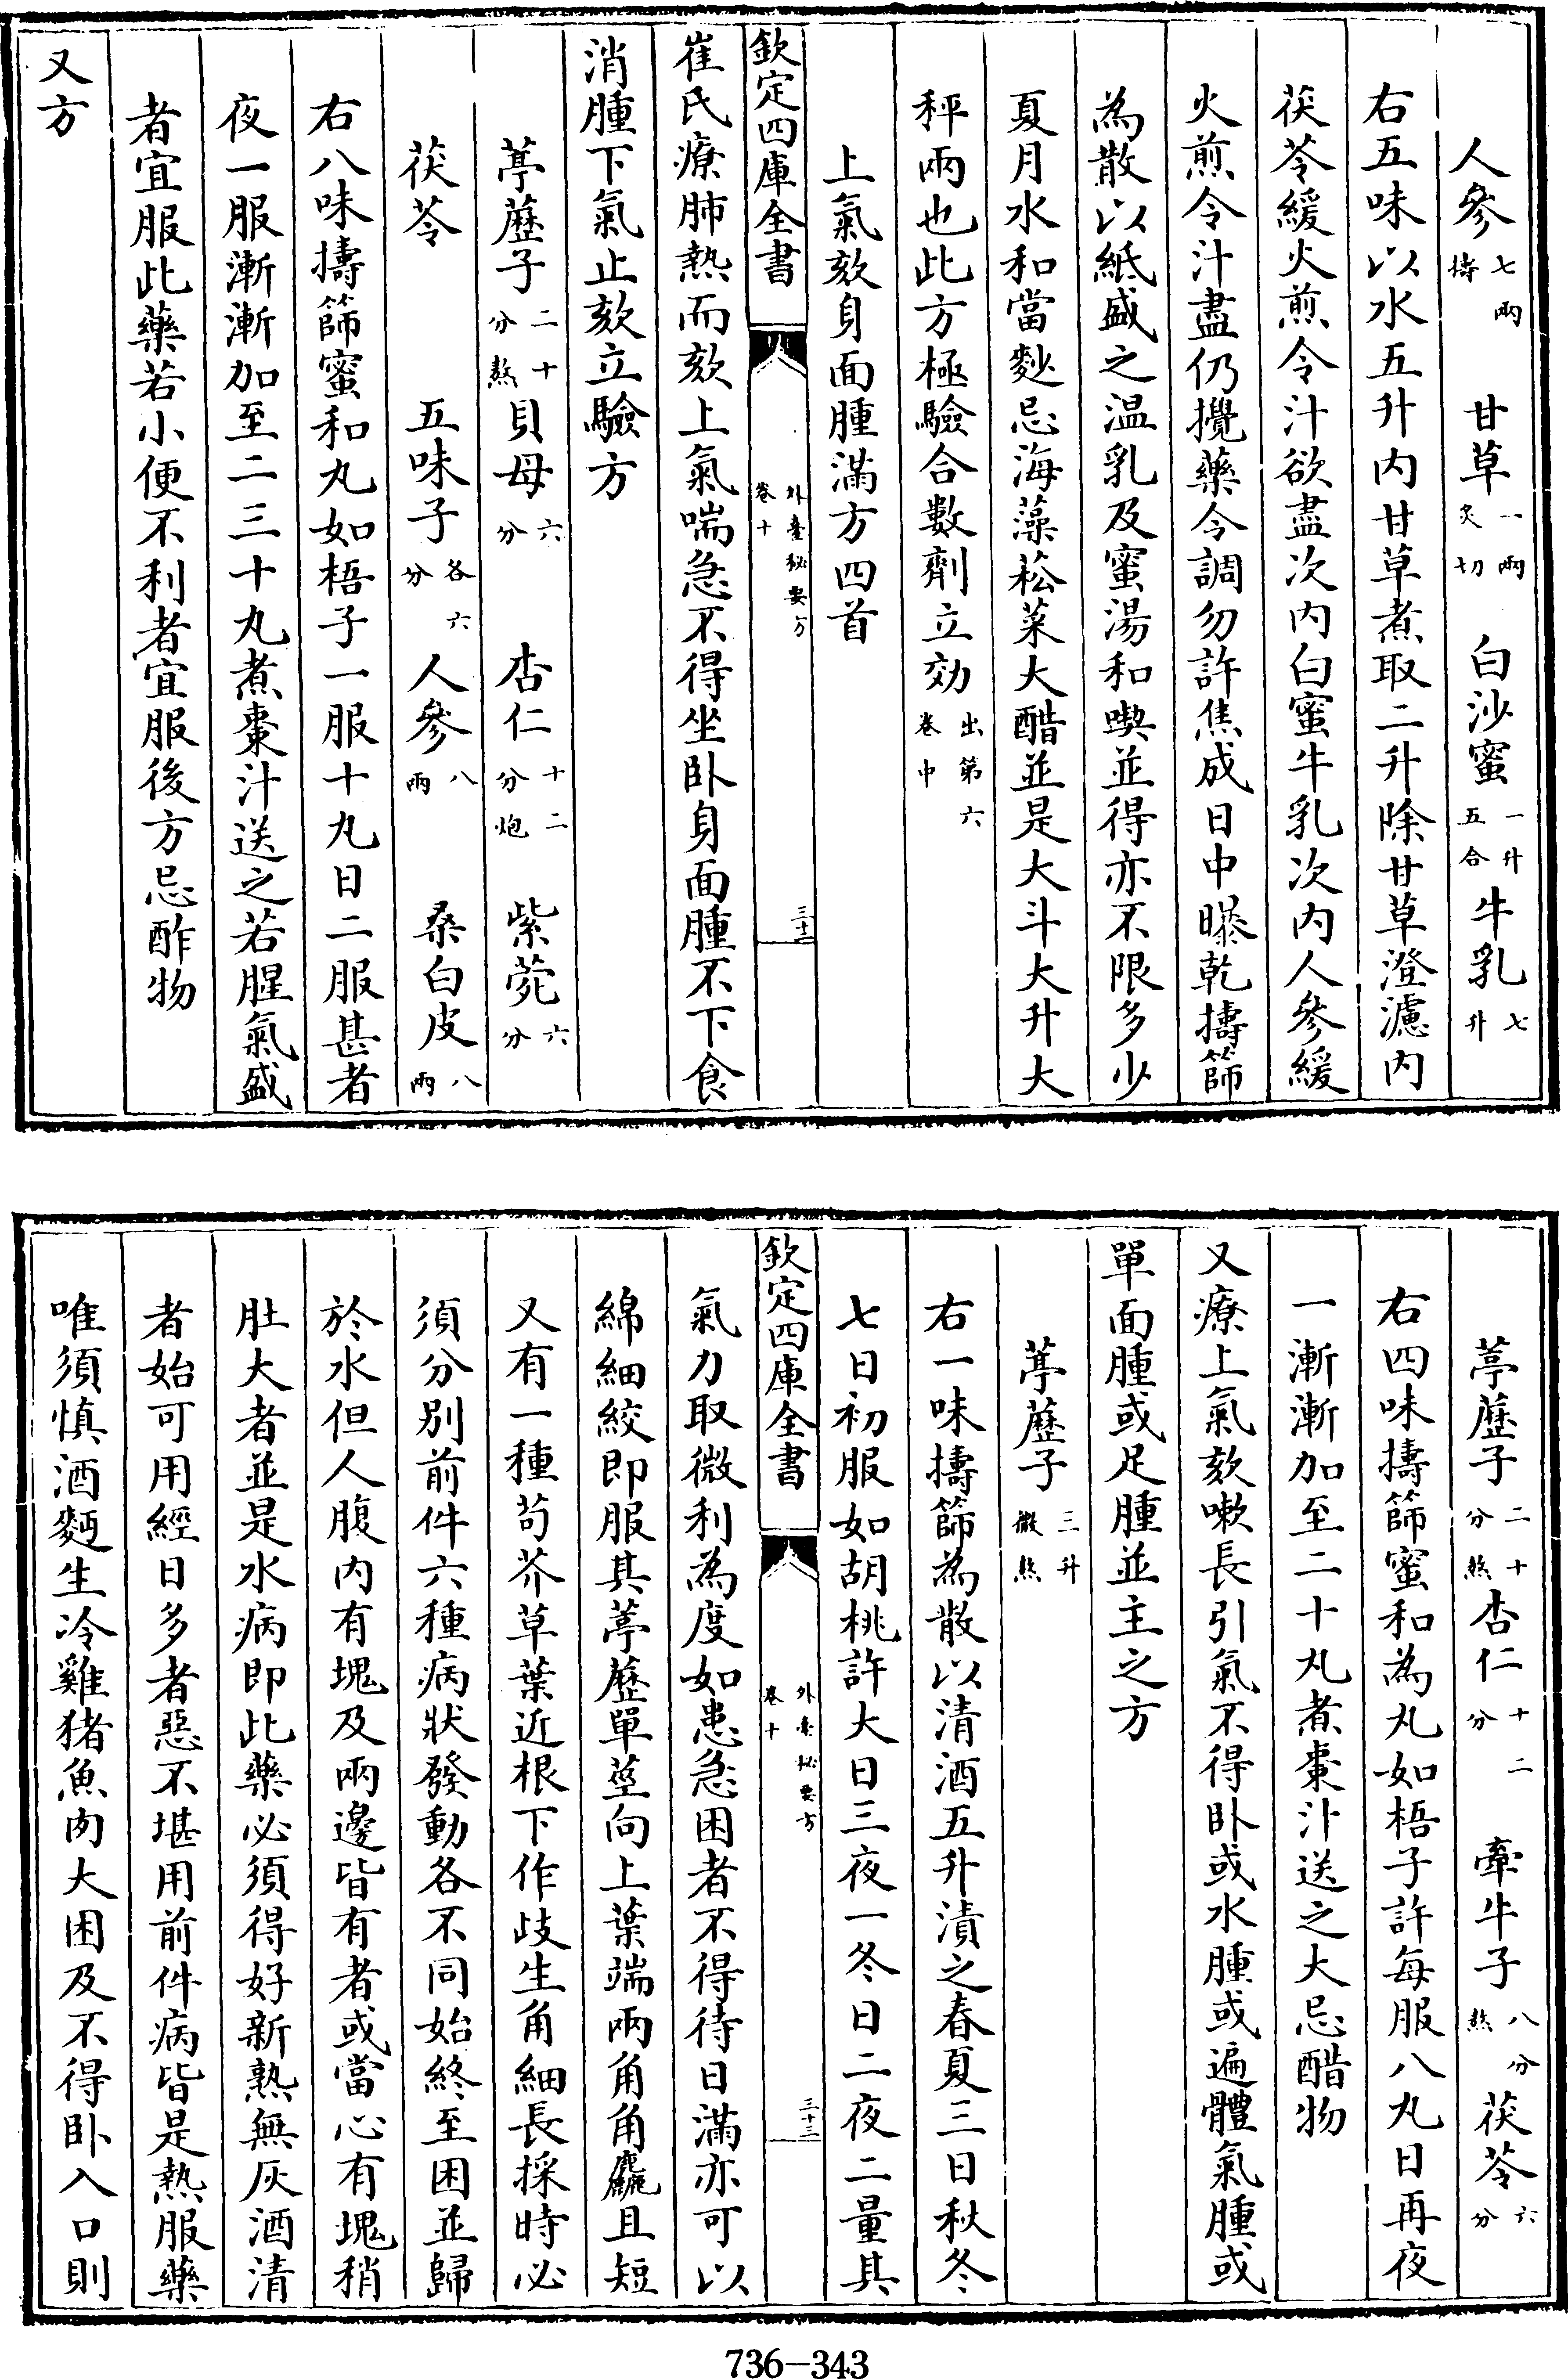 人參七兩擣甘草一兩炙切白沙蜜一升五合牛乳七升
右五味以水五升内甘草煮取二升除甘草澄濾内
茯苓緩火煎令汁欲盡次内白蜜牛乳次内人參緩
火煎令汁盡仍攪藥令調勿許焦成日中曝乾擣篩
為散以紙盛之温乳及蜜湯和喫並得亦不限多少
夏月水和當麨忌海藻菘菜大醋並是大斗大升大
秤兩也此方極驗合數劑立効出第六卷中
上氣欬身面腫滿方四首
欽定四庫全書
外臺秘要方
卷十
三十二
崔氏療肺熱而欬上氣喘急不得坐卧身面腫不下食
消腫下氣止欬立驗方
葶藶子二十分熬貝母六分杏仁十二分炮紫菀六分
茯苓五味子各六分人參八兩桑白皮八兩
右八味擣篩蜜和丸如梧子一服十丸日二服甚者
夜一服漸漸加至二三十丸煮棗汁送之若腥氣盛
者宜服此藥若小便不利者宜服後方忌酢物
又方
葶藶子二十分熬杏仁十二分牽牛子八分熬茯苓六分
右四味擣篩蜜和為丸如梧子許每服八丸日再夜
一漸漸加至二十丸煮棗汁送之大忌醋物
又療上氣欬嗽長引氣不得卧或水腫或遍體氣腫或
單面腫或足腫並主之方
葶藶子三升微熬
右一味擣篩為散以清酒五升漬之春夏三日秋冬
七日初服如胡桃許大日三夜一冬日二夜二量其
欽定四庫全書
外臺秘要方
卷十
三十三
氣力取微利為度如患急困者不得待日滿亦可以
綿細絞即服其葶藶單莖向上葉端兩角角麤且短
又有一種苟芥草葉近根下作歧生角細長採時必
須分別前件六種病狀發動各不同始終至困並歸
於水但人腹内有塊及兩邊皆有者或當心有塊稍
肚大者並是水病即此藥必須得好新熟無灰酒清
者始可用經日多者惡不堪用前件病皆是熱服藥
唯須慎酒麪生冷雞猪魚肉大困及不得卧入口則
736-343